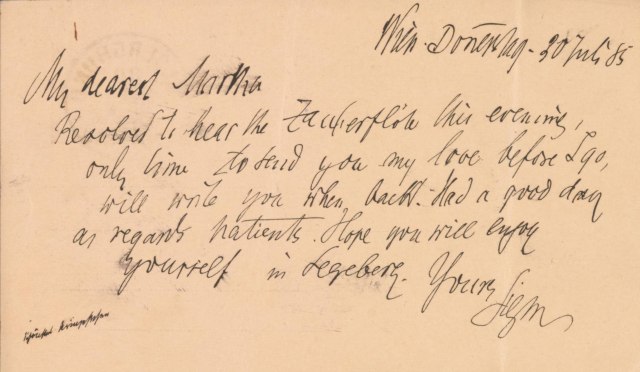 Wien. Donnerstag. 30 Juli 85
My dearest Martha
Resolved to hear the Zauberflöte this evening,
only time to send you my love before I go,
will write you when back. Had a good day
as regards patients. Hope you will enjoy
yourself in Segeberg. Yours
Sigm